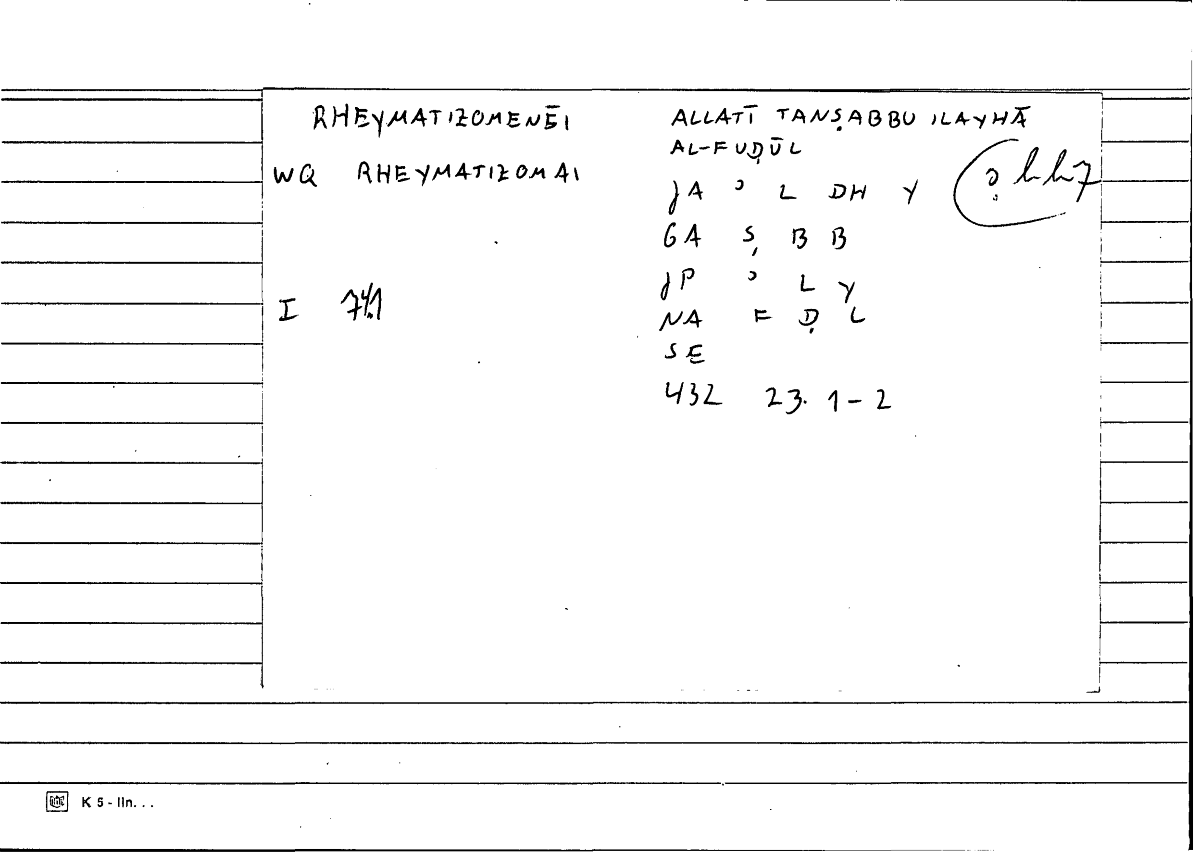 RHEYMATIZOMENĒI
WQ RHEYMATIZOMAI
I 74.1
ALLATĪ TANṢABBU ILAYHĀ
AL-FUḌŪL
JA ʾ L DH Y
GA Ṣ B B
JP ʾ L Y
NA F Ḍ L
SE
432 23. 1-2
K 5 - lin. . .